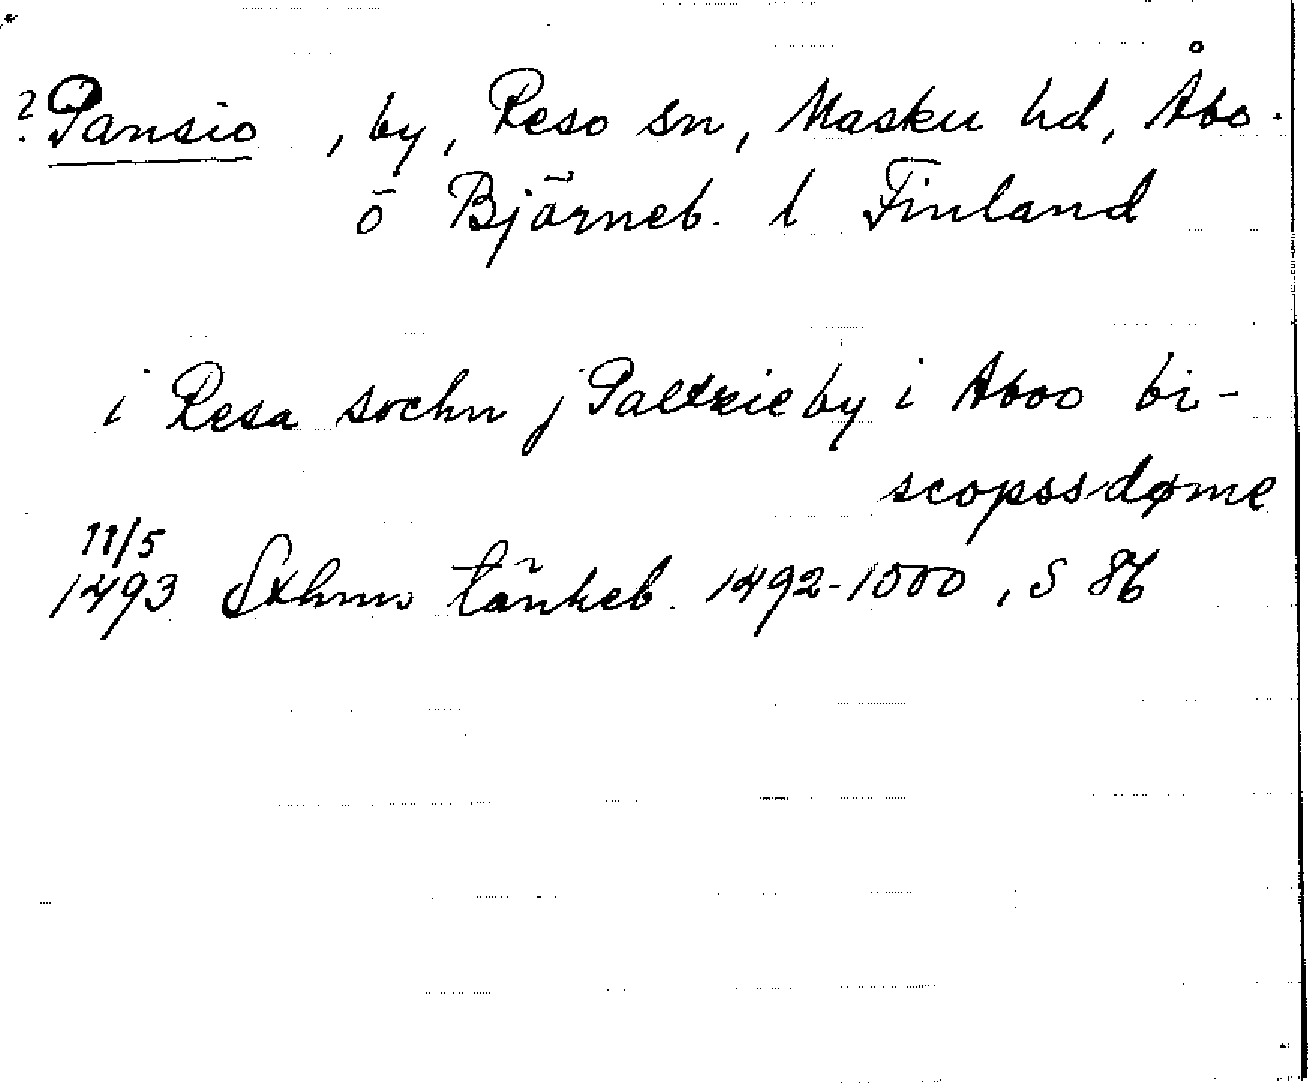 ? Pansio, by, Reso sn, Masku hd, Åbo.
o Björneb. l Finland
i Resa sochn j Paltzie by i Aboo bi-
scopssdøme
11/5
1493 Sthms tänkeb. 1492-1500, S 86